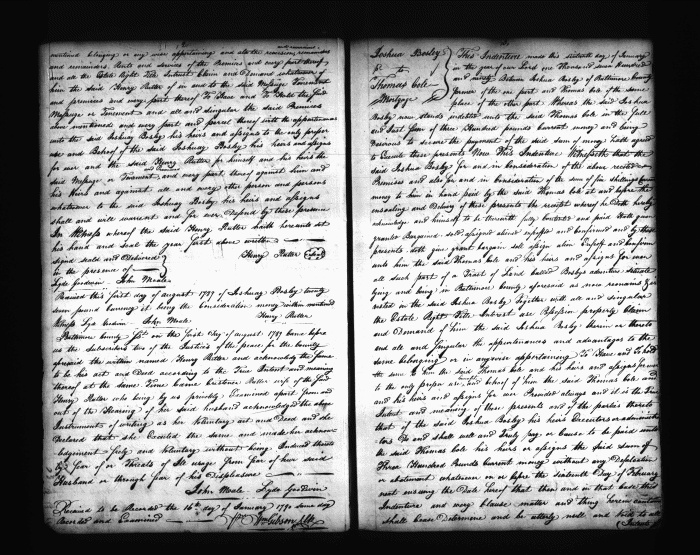 mentioned belonging or any wise appertaining and also the reversion remainders
and remainders Rents and services of the Premises and every part thereof
and all the Estate Right Title Interest Claim and Demand whatsoever of
him the said Henry Rutter of in or to the said Messuage Tenement
and premises and every part thereof To Have and To Hold the said
Messuage or Tenement and all and singular the said Premises
above mentioned and every part and parcel thereof with the appurtenances
unto the said Joshuay Bosley his heirs and assigns to the only proper
use and Behoof of the said Joshuay Bosley his heirs and assigns
for ever and the said Henry Rutter for himself and his heirs the
said Messuage or Tenement and every part thereof against him and
his Heirs and against all and every other person and persons
whatsoever to the said Joshuay Bosley his heirs and assigns
shall and will warrant and for ever Defend by these presents
In Witness whereof the said Henry Rutter hath hereunto set
his hand and seal the year first above written
signed seald and Delivered
in the presence of
Henry Rutter
Lyde Goodwin John Moale
Received this first day of August 1787 of Joshuay Bosley twenty
seven pound currency it being the consideration money within mentioned
Witness Lyde Goodwin John Moale Henry Rutter
Baltimore County Sct on the first day of August 1787 came before
us the subscribers two of the Justices of the peace for the county
aforesaid the within named Henry Rutter and acknowledged the same
to be his act and Deed according to the True Intent and meaning
thereof at the same Time came Rutter wife of the said
Henry Rutter who being by us privately Examined apart from and
out of the Hearing of her said husband acknowledged the above
Instrument of writing as her Voluntary act and Deed and she
Declared that she Executed the same and made her acknow
ledgement freely and Voluntary without being Induced thereto
by Fear of or Threats of Ill usage from Fear of her said
Husband or through fear of his Displeasure
John Moale Lyde Goodwin
Received to be Recorded the 16th day of January 1790 same day
Recorded and Examined Wm Gibson Clk
Joshua Bosley
to
Thomas Cole
Mortgage
This Indenture made this sixteenth day of January
in the year of our Lord one Thousand seven Hundred
and ninety Between Joshua Bosley of Baltimore County
farmer of the one part and Thomas Cole of the same
place of the other part Whereas the said Joshua
Bosley now stands indebted unto the said Thomas Cole in the full
and Just sum of Three Hundred pounds current money and being
Desirous to secure the payment of the said sum of money hath agreed
to Execute these presents Now This Indenture Witnesseth that the
said Joshua Bosley for and in consideration of the above recited
Premises and also for and in consideration of the sum of five shillings current
money to him in hand paid by the said Thomas Cole at and before the
ensealing and Delivery of these presents the receipt whereof he Doth hereby
acknowledge and himself to be therewith fully contented and paid Hath given
granted Bargained sold aliened enfeoffed and confirmed and by these
presents doth give grant bargain sell alien Enfeoff and confirm
unto him the said Thomas Cole and his heirs and assigns for ever
all such part of a Tract of Land called Bosleys adventure situate
lying and being in Baltimore County aforesaid as now remains
vested in the said Joshua Bosley Together with all and singular
the Estate Right Title Interest use Possession property claim
and Demand of him the said Joshua Bosley therein or thereto
and all and Singular the appurtenances and advantages to the
same belonging or in anywise appertaining To Have and To hold
the same to him the said Thomas Cole and his heirs and assigns for ever
to the only proper use and behoof of him the said Thomas Cole and
his heirs and assigns for ever Provided always and it is the True
Intent and meaning of these presents and of the parties thereto
that if the said Joshua Bosley his heirs Executors or administra
tors Do and shall well and Truly pay or cause to be paid unto
the said Thomas Cole his heirs or assigns the said sum of
Three Hundred Pounds current money without any Defalcation
or abatement whatsoever on or before the sixteenth Day of February
next ensuing the Date hereof that then and in that case this
Indenture and every clause matter and thing herein contained
shall cease Determine and be utterly null and void to all
(Intents